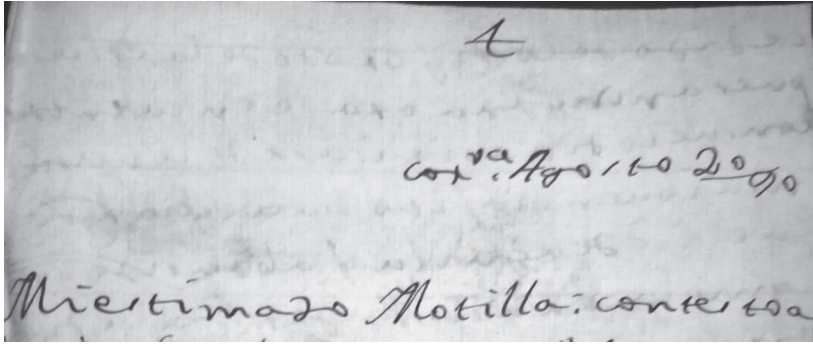 Cor.ᵛᵃ Agosto 20/90
Mi estimado Motilla: contesto a